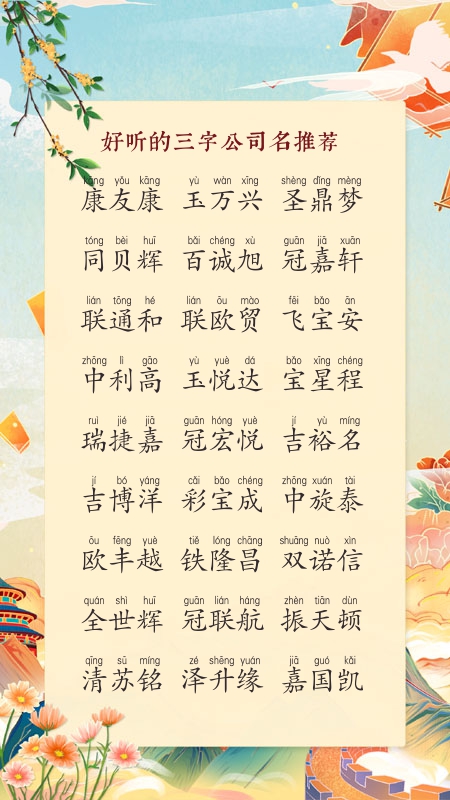 好听的三字公司名推荐
kāng yǒu kāng yù wàn xīng shèng dǐng mèng
康友康 玉万兴 圣鼎梦
tóng bèi huī bǎi chéng xù guān jiā xuān
同贝辉 百诚旭 冠嘉轩
lián tōng hé lián ōu mào fēi bǎo ān
联通和 联欧贸 飞宝安
zhōng lì gāo yù yuè dá bǎo xīng chéng
中利高 玉悦达 宝星程
ruì jié jiā guān hóng yuè jí yù míng
瑞捷嘉 冠宏悦 吉裕名
jí bó yáng cǎi bǎo chéng zhōng xuán tài
吉博洋 彩宝成 中旋泰
ōu fēng yuè tiě lóng chāng shuāng nuò xìn
欧丰越 铁隆昌 双诺信
quán shì huī guān lián háng zhèn tiān dùn
全世辉 冠联航 振天顿
qīng sū míng zé shēng yuán jiā guó kǎi
清苏铭 泽升缘 嘉国凯